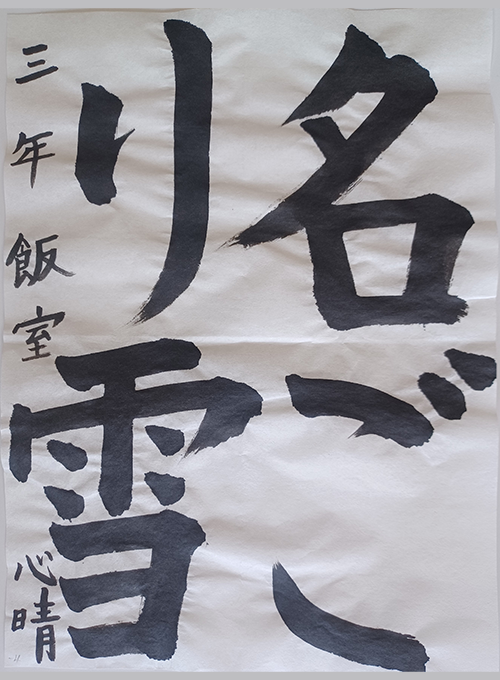 名ごり雪
三年飯室心晴